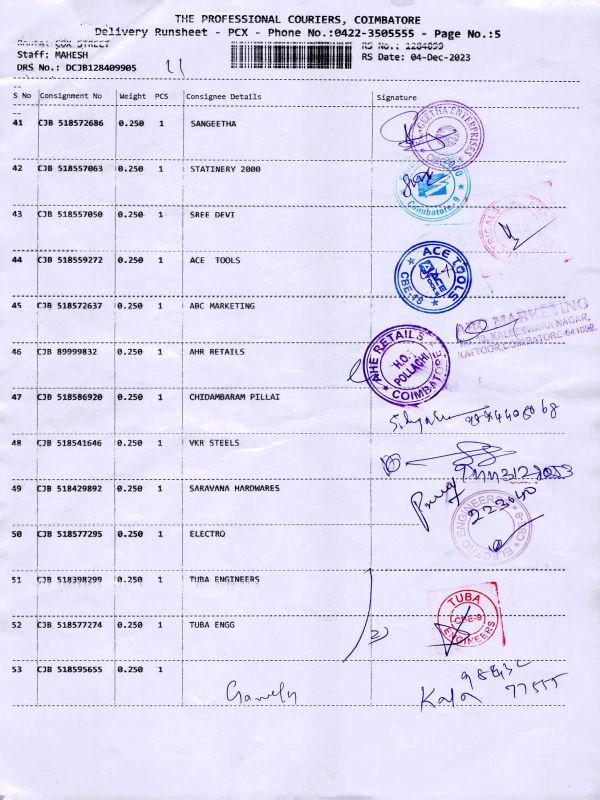 THE PROFESSIONAL COURIERS, COIMBATORE
Delivery Runsheet - PCX - Phone No.:0422-3505555 - Page No.:5
RS No.: 1284099
Staff: MAHESH
RS Date: 04-Dec-2023
DRS No.: DCJB128409905
11
S No Consignment No Weight PCS Consignee Details Signature
41 CJB 518572686 0.250 1 SANGEETHA
42 CJB 518557063 0.250 1 STATINERY 2000
Coimbatore-9
43 CJB 518557050 0.250 1 SREE DEVI
44 CJB 518559272 0.250 1 ACE TOOLS
ACE TOOLS
CBE-18
45 CJB 518572637 0.250 1 ABC MARKETING
MARKETING
KALEESWARA NAGAR,
KATTOOR, COIMBATORE-641009.
46 CJB 89999832 0.250 1 AHR RETAILS
RETAILS
H.O.
POLLACHI
COIMBATORE
47 CJB 518586920 0.250 1 CHIDAMBARAM PILLAI
48 CJB 518541646 0.250 1 VKR STEELS
49 CJB 518429892 0.250 1 SARAVANA HARDWARES
50 CJB 518577295 0.250 1 ELECTRO
51 CJB 518398299 0.250 1 TUBA ENGINEERS
52 CJB 518577274 0.250 1 TUBA ENGG
TUBA
CBE-9
ENGINEERS
53 CJB 518595655 0.250 1
Kala